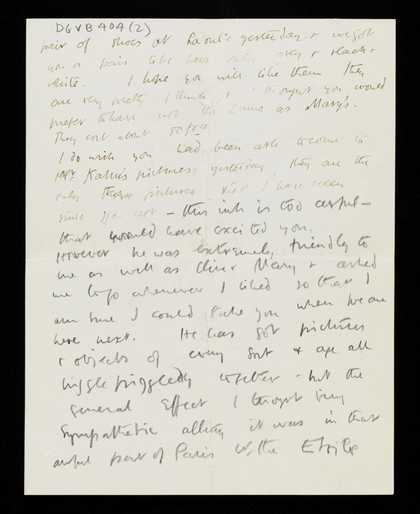 DGVB 404 (2)
pair of shoes at Raoul's yesterday & we got
you a pair like hers only grey & black &
white. I hope you will like them They
are very pretty I think & I thought you would
prefer to have not the same as Mary's.
They cost about
I do wish you had been able to come to
Mr Kahn's pictures yesterday, they are the
only pictures that I have seen
since - this ink is too awful -
that would have excited you.
However he was extremely friendly to
me as well as Clive & Mary & asked
me to go whenever I liked so that I
am sure I could take you when we are
here next. He has got pictures
& objects of every sort & age all
higgle piggledy together - but the
general effect I thought very
sympathetic altho it was in that
awful part of Paris the Etoile